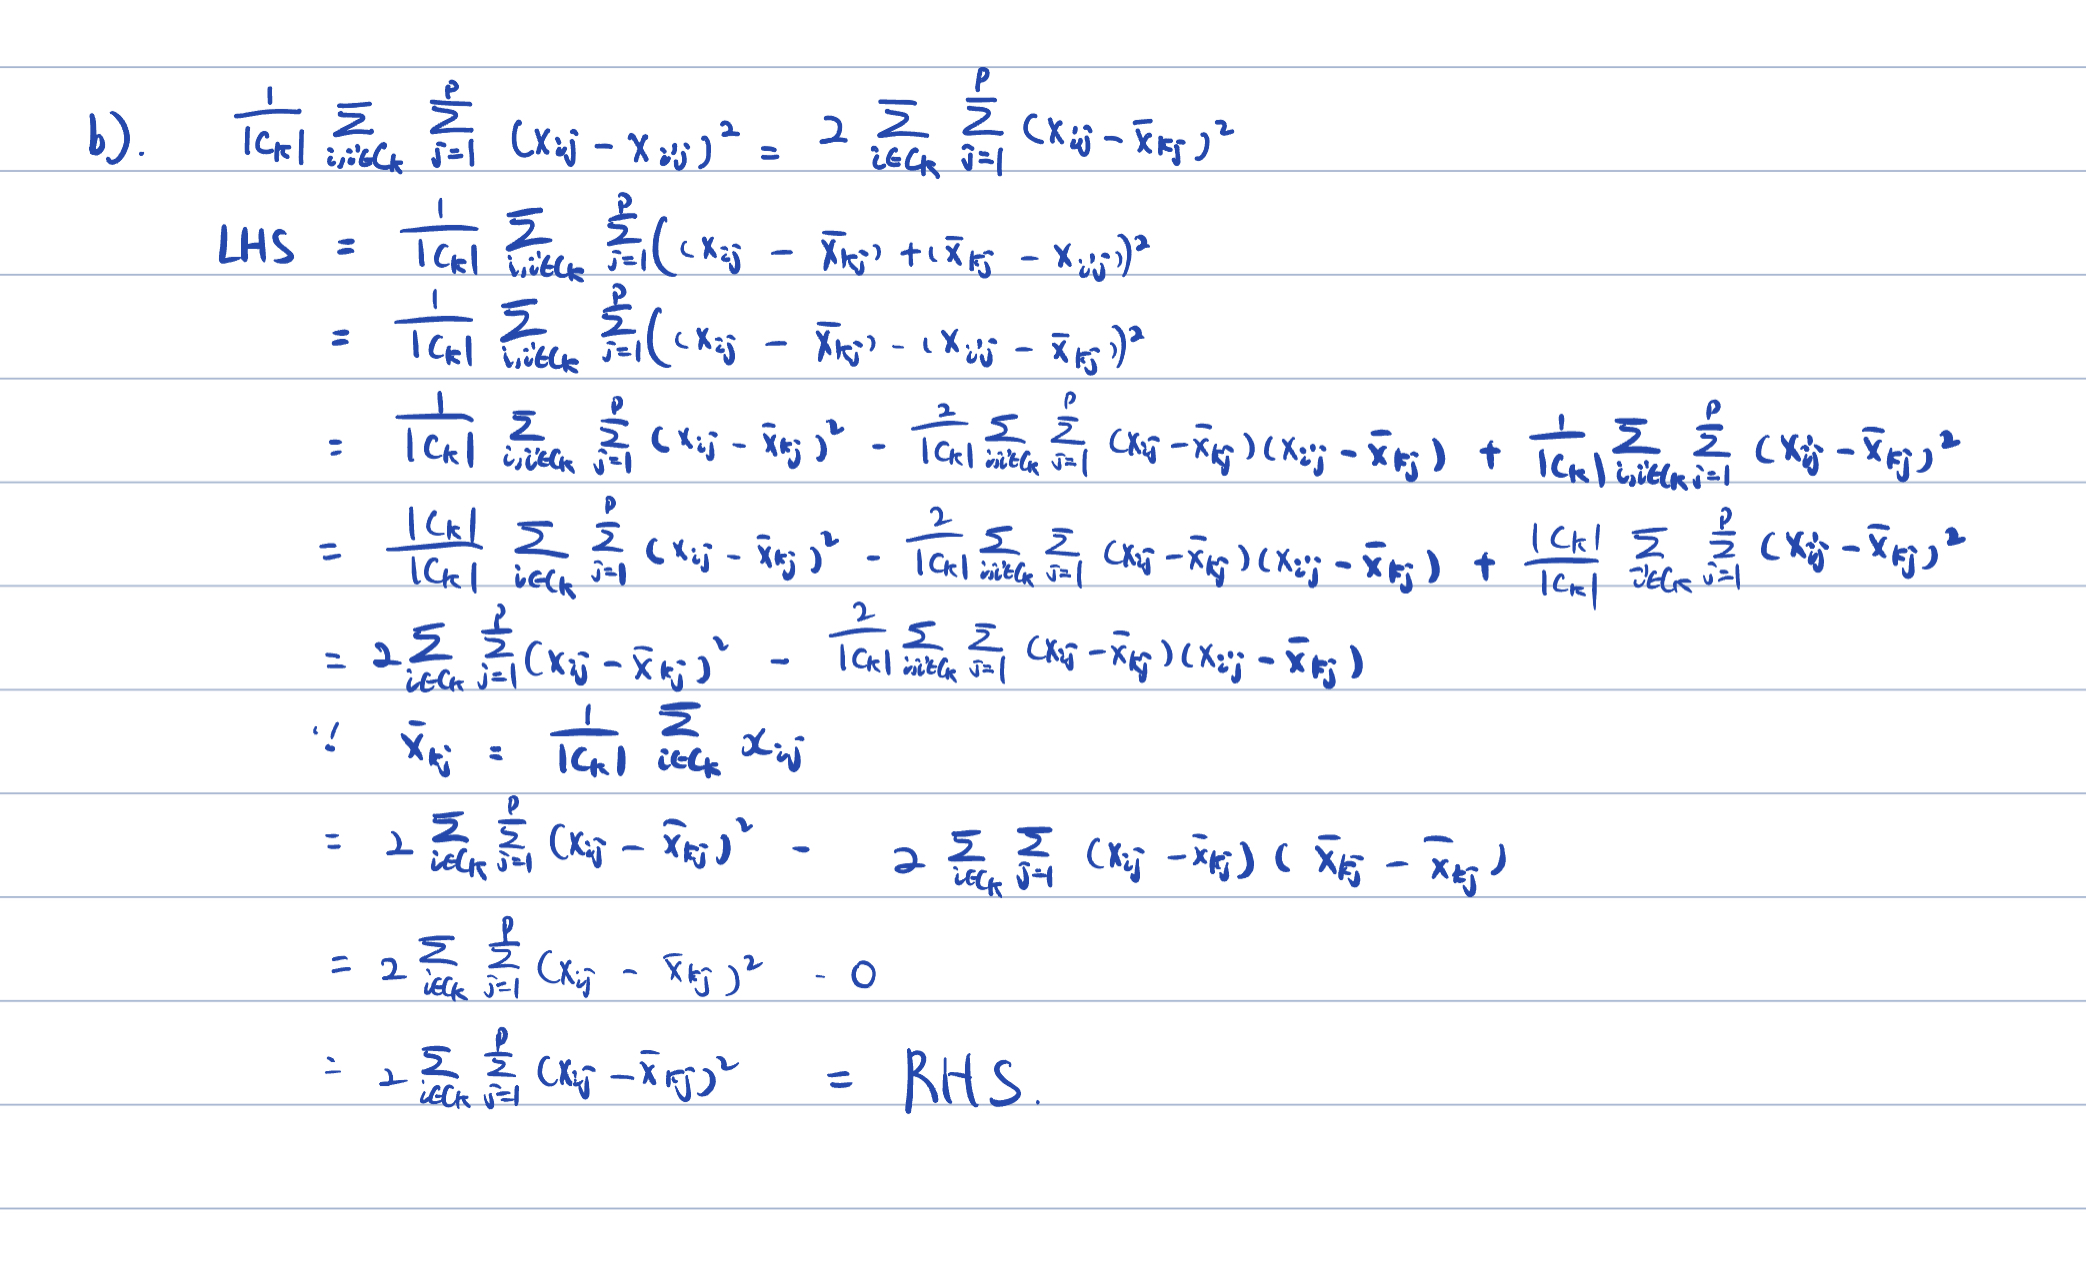 b). \frac{1}{|C_k|} \sum_{i,i'∈C_k} \sum_{j=1}^{p} (x_{ij} - x_{i'j})^2 = 2 \sum_{i∈C_k} \sum_{j=1}^{p} (x_{ij} - \bar{x}_{kj})^2
LHS = \frac{1}{|C_k|} \sum_{i,i'∈C_k} \sum_{j=1}^{p} ((x_{ij} - \bar{x}_{kj}) + (\bar{x}_{kj} - x_{i'j}))^2
= \frac{1}{|C_k|} \sum_{i,i'∈C_k} \sum_{j=1}^{p} ((x_{ij} - \bar{x}_{kj}) - (x_{i'j} - \bar{x}_{kj}))^2
= \frac{1}{|C_k|} \sum_{i,i'∈C_k} \sum_{j=1}^{p} (x_{ij} - \bar{x}_{kj})^2 - \frac{2}{|C_k|} \sum_{i,i'∈C_k} \sum_{j=1}^{p} (x_{ij} - \bar{x}_{kj})(x_{i'j} - \bar{x}_{kj}) + \frac{1}{|C_k|} \sum_{i,i'∈C_k} \sum_{j=1}^{p} (x_{i'j} - \bar{x}_{kj})^2
= \frac{|C_k|}{|C_k|} \sum_{i∈C_k} \sum_{j=1}^{p} (x_{ij} - \bar{x}_{kj})^2 - \frac{2}{|C_k|} \sum_{i,i'∈C_k} \sum_{j=1} (x_{ij} - \bar{x}_{kj})(x_{i'j} - \bar{x}_{kj}) + \frac{|C_k|}{|C_k|} \sum_{i'∈C_k} \sum_{j=1}^{p} (x_{i'j} - \bar{x}_{kj})^2
= 2 \sum_{i∈C_k} \sum_{j=1}^{p} (x_{ij} - \bar{x}_{kj})^2 - \frac{2}{|C_k|} \sum_{i,i'∈C_k} \sum_{j=1} (x_{ij} - \bar{x}_{kj})(x_{i'j} - \bar{x}_{kj})
∵ \bar{x}_{kj} = \frac{1}{|C_k|} \sum_{i∈C_k} x_{ij}
= 2 \sum_{i∈C_k} \sum_{j=1}^{p} (x_{ij} - \bar{x}_{kj})^2 - 2 \sum_{i∈C_k} \sum_{j=1} (x_{ij} - \bar{x}_{kj})(\bar{x}_{kj} - \bar{x}_{kj})
= 2 \sum_{i∈C_k} \sum_{j=1}^{p} (x_{ij} - \bar{x}_{kj})^2 - 0
= 2 \sum_{i∈C_k} \sum_{j=1}^{p} (x_{ij} - \bar{x}_{kj})^2 = RHS.